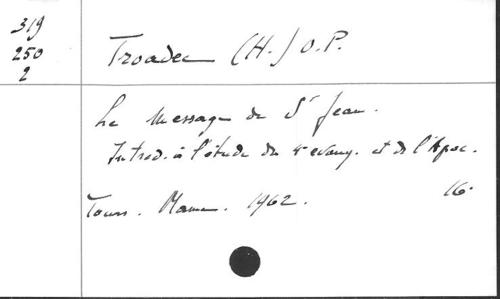 319
250
2
Troadec (H.) O.P.
Le Message de St Jean.
Introd. à l'étude du 4e évang. et de l'Apoc.
Tours. Mame. 1962.
16°